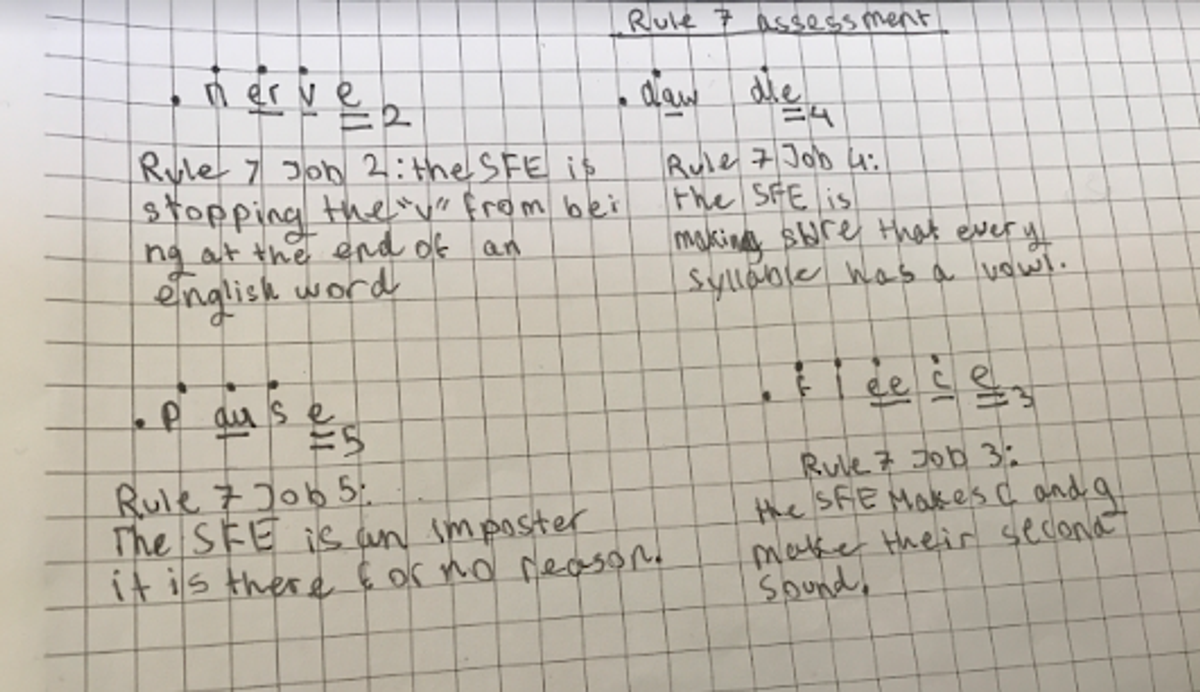 Rule 7 assessment
. n er v e 2
Rule 7 Job 2: the SFE is
stopping the "v" from bei
ng at the end of an
english word
. daw dle 4
Rule 7 Job 4:
the SFE is
making sure that every
syllable has a vowl.
. p au s e 5
Rule 7 Job 5:
The SFE is an imposter
it is there for no reason.
. f l ee c e 3
Rule 7 Job 3:
the SFE Makes C and g
make their second
sound.